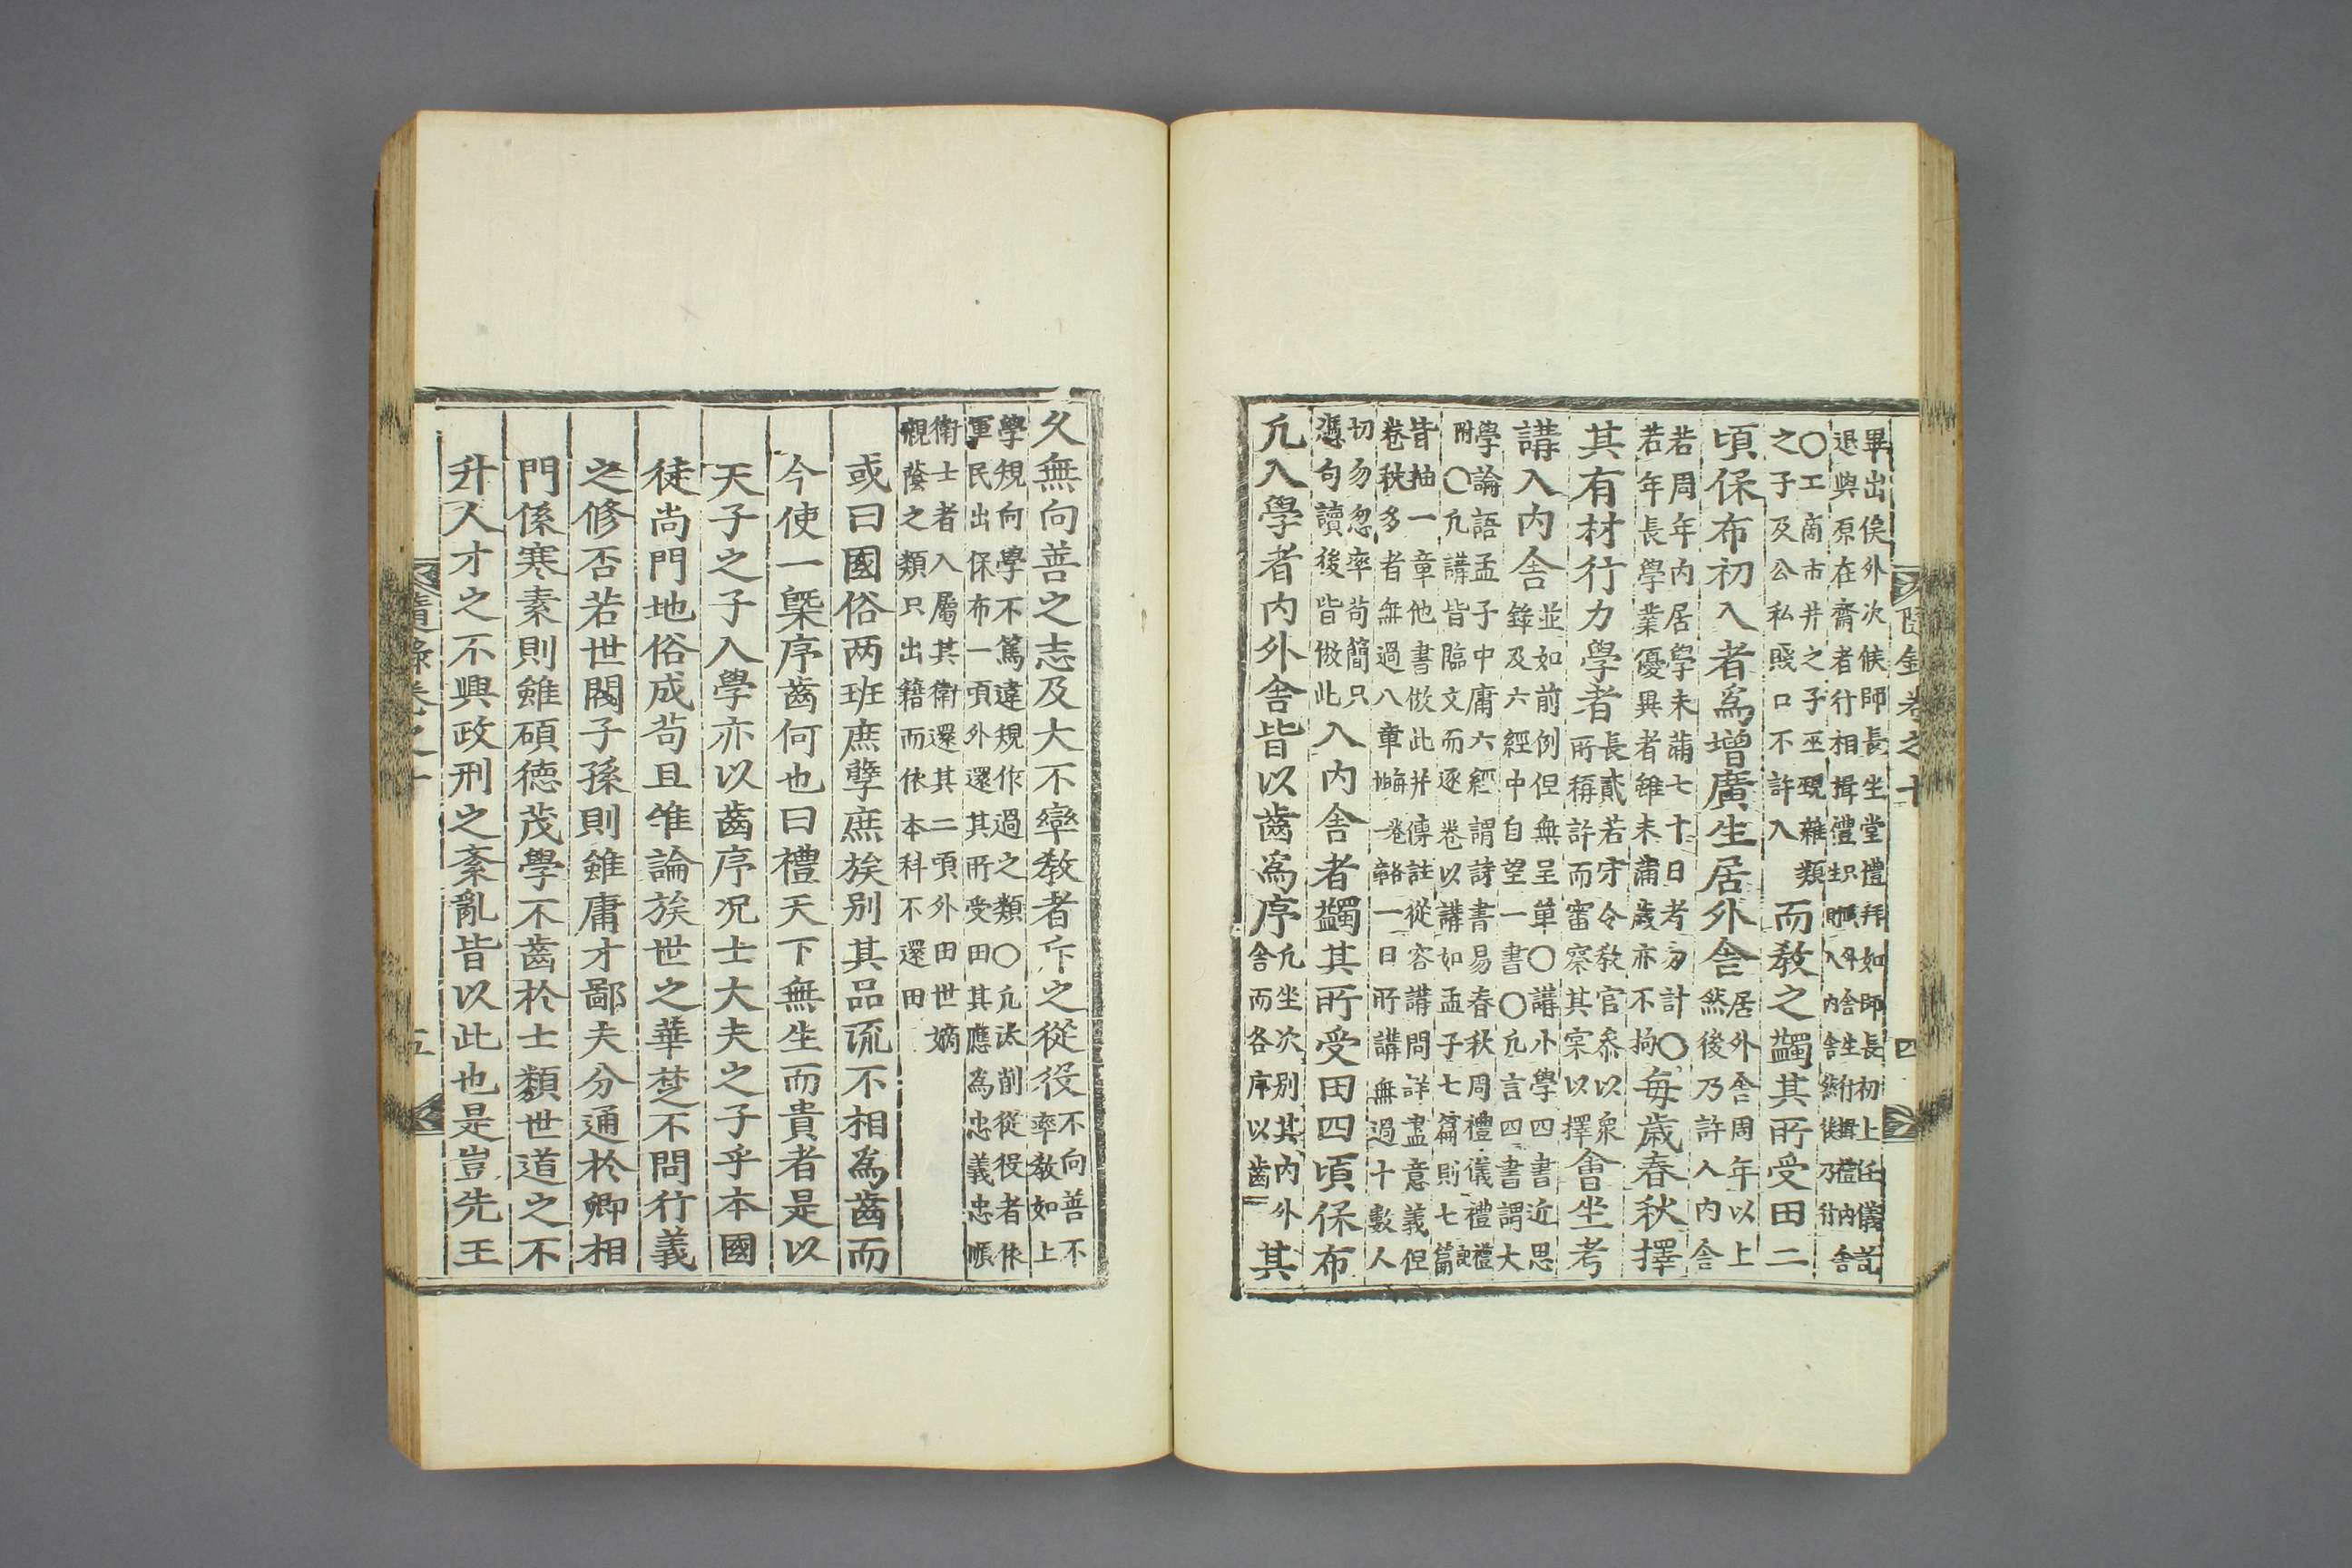 隨錄卷之十
四
畢出俟外次候師長坐堂禮拜如師長初上任儀訖
退與原在齋者行相揖禮
○工商市井之子巫覡雜類
之子及公私賤口不許入
而敎之蠲其所受田二
頃保布初入者爲增廣生居外舍
居外舍周年以上
然後乃許入內舍
若周年內居學未滿七十日考勿計○
若年長學業優異者雖未滿歲亦不拘
每歲春秋擇
其有材行力學者
長貳若守令敎官叅以衆
所稱許而審察其宲以擇
會坐考
講入內舍
並如前例但無呈單○講小學四書近思
錄及六經中自望一書○凡言四書謂大
學論語孟子中庸六經謂詩書易春秋周禮儀禮禮記
附○凡講皆臨文而逐卷以講如孟子七篇則七篇
皆抽一章他書倣此并傳註從容講問詳盡意義但
卷秩多者無過八章每卷略一日所講無過十數人
切勿忽率苟簡只
憑句讀後皆倣此
入內舍者蠲其所受田四頃保布
凡入學者內外舍皆以齒爲序
凡坐次別其內外
舍而各序以齒
其
久無向善之志及大不率敎者斥之從役
不向善不
率敎如上
學規向學不篤違規作過之類○凡汰削從役者依
軍民出保布一頃外還其所受田其應為忠義忠順
衛士者入屬其衛還其二頃外田世嫡
親蔭之類只出籍而依本科不還田
或曰國俗两班庶孽庶族别其品流不相爲齒而
今使一槩序齒何也曰禮天下無生而貴者是以
天子之子入學亦以齒序况士大夫之子乎本國
徒尚門地俗成苟且惟論族世之華楚不問行義
之修否若世閥子孫則雖庸才鄙夫分通於卿相
門係寒素則雖碩徳茂學不齒於士類世道之不
升人才之不興政刑之紊亂皆以此也是豈先王
隨錄卷之十
五